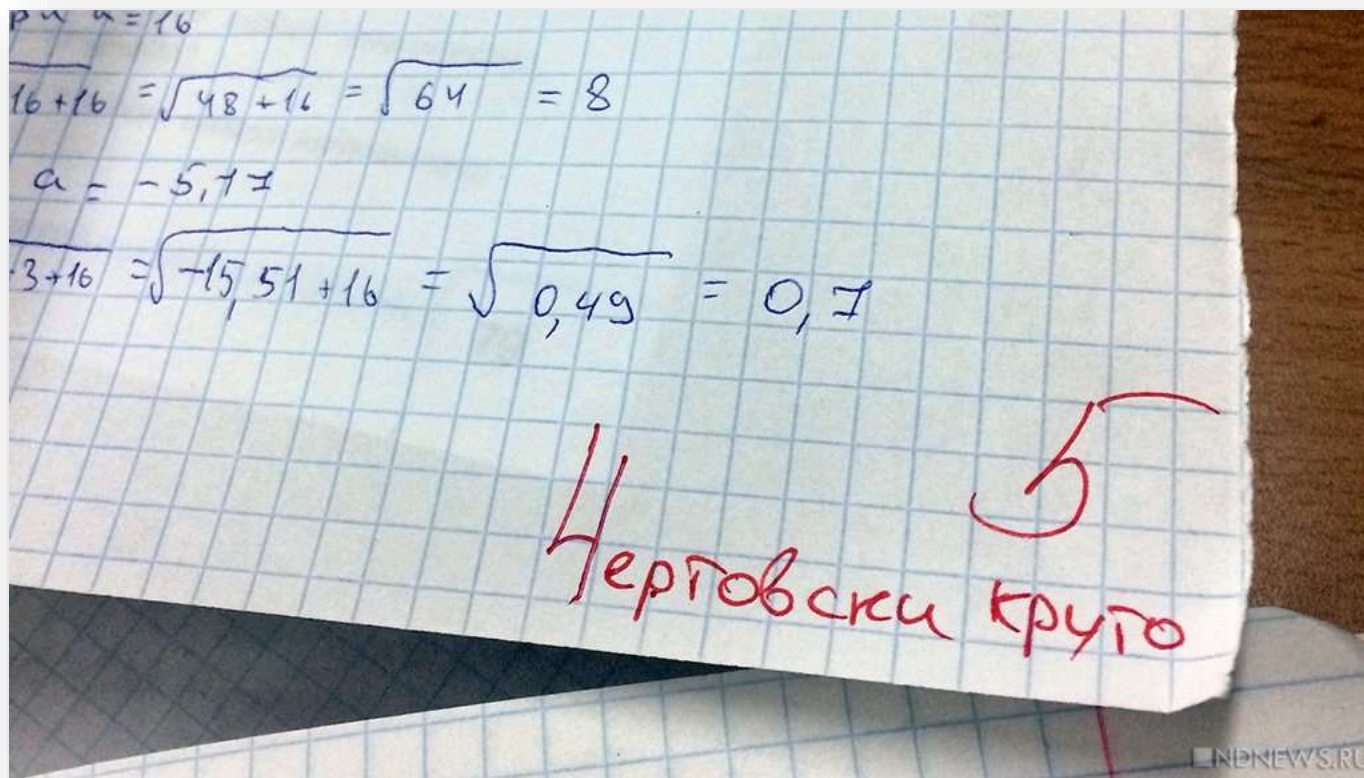 при a = 16
16+16 = √48+16 = √64 = 8
a = -5,17
·3+16 = √-15,51+16 = √0,49 = 0,7
5
Чертовски круто
NDNEWS.RU